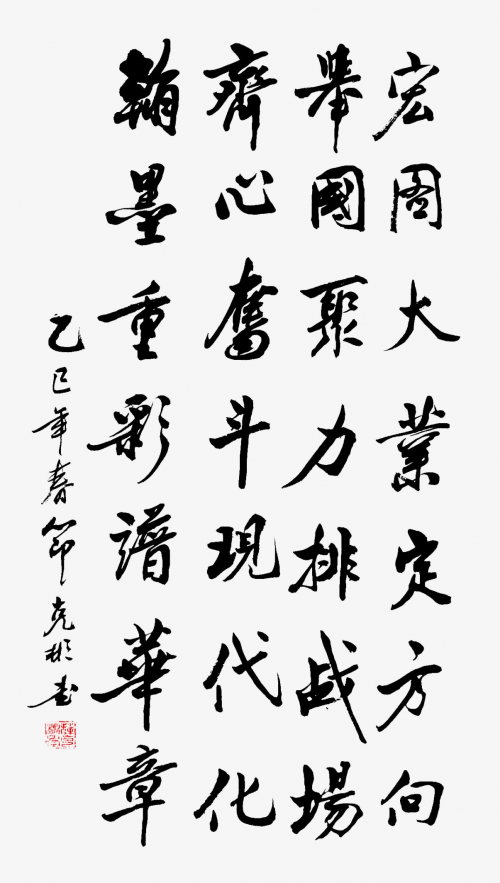 宏圖大業定方向
舉國聚力排战場
齊心奮斗現代化
翰墨重彩譜華章
乙巳年春節克彬書